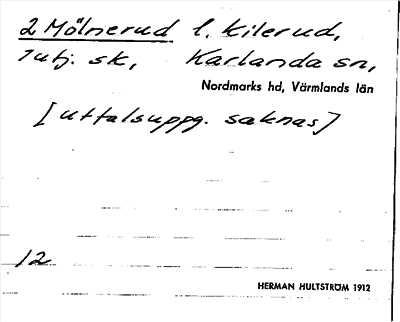 2 Mölnerud l. Kilerud,
Tutj. sk, Karlanda sn,
Nordmarks hd, Värmlands län
[uttalsuppg. saknas]
12
HERMAN HULTSTRÖM 1912